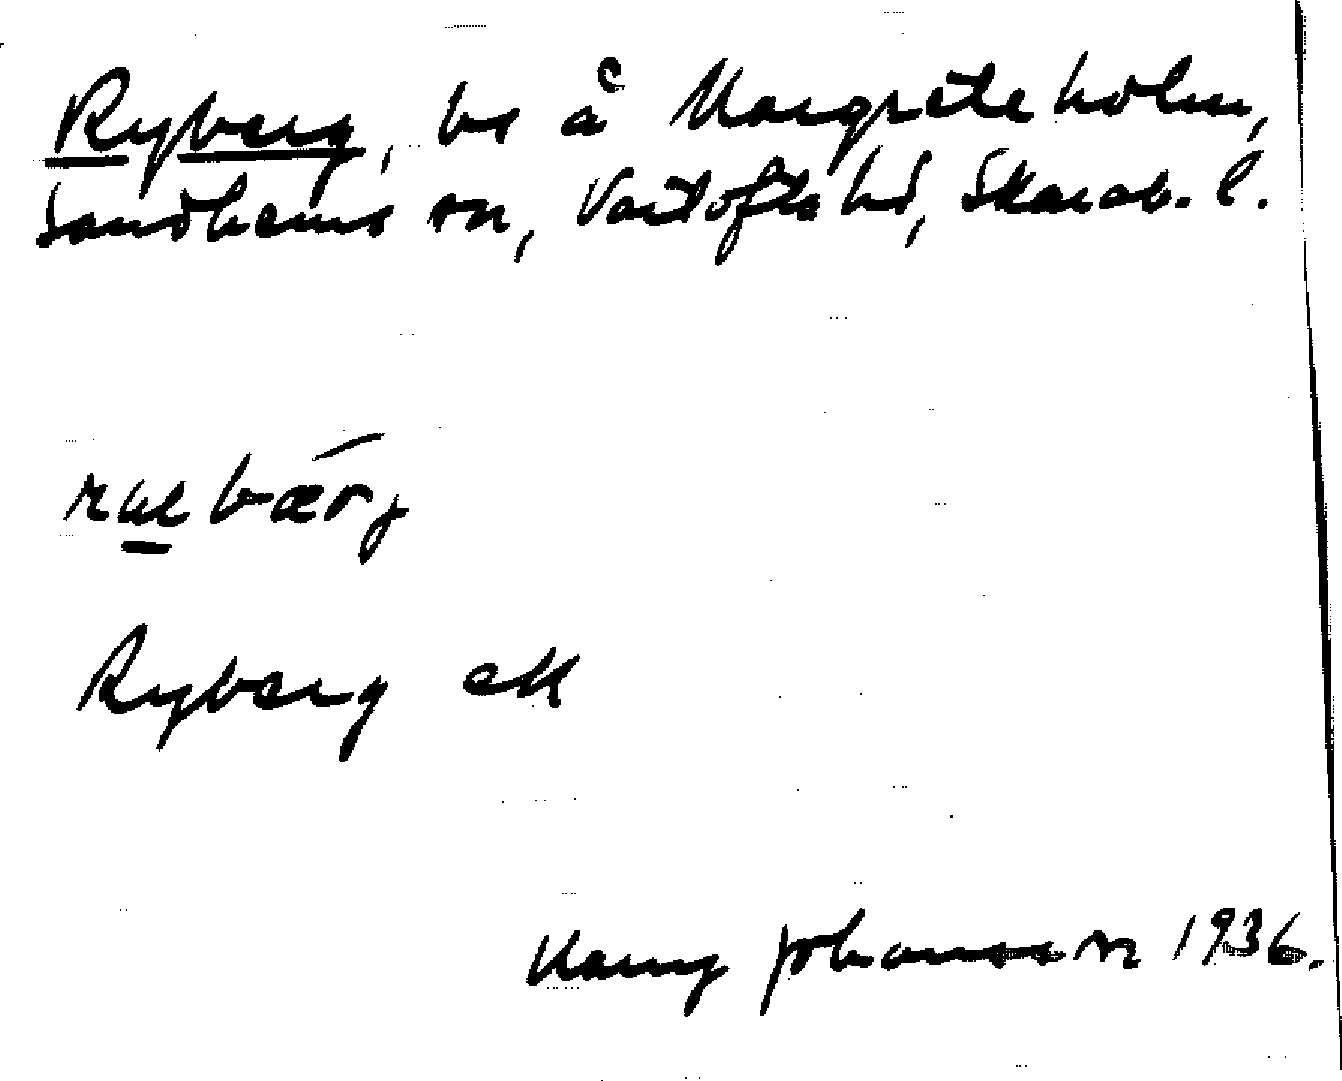 Ryberg, bs å Margreteholm,
Sandhems sn, Vartofta hd, Skarab. l.
Ryberg ek
Harry Johansson 1936.